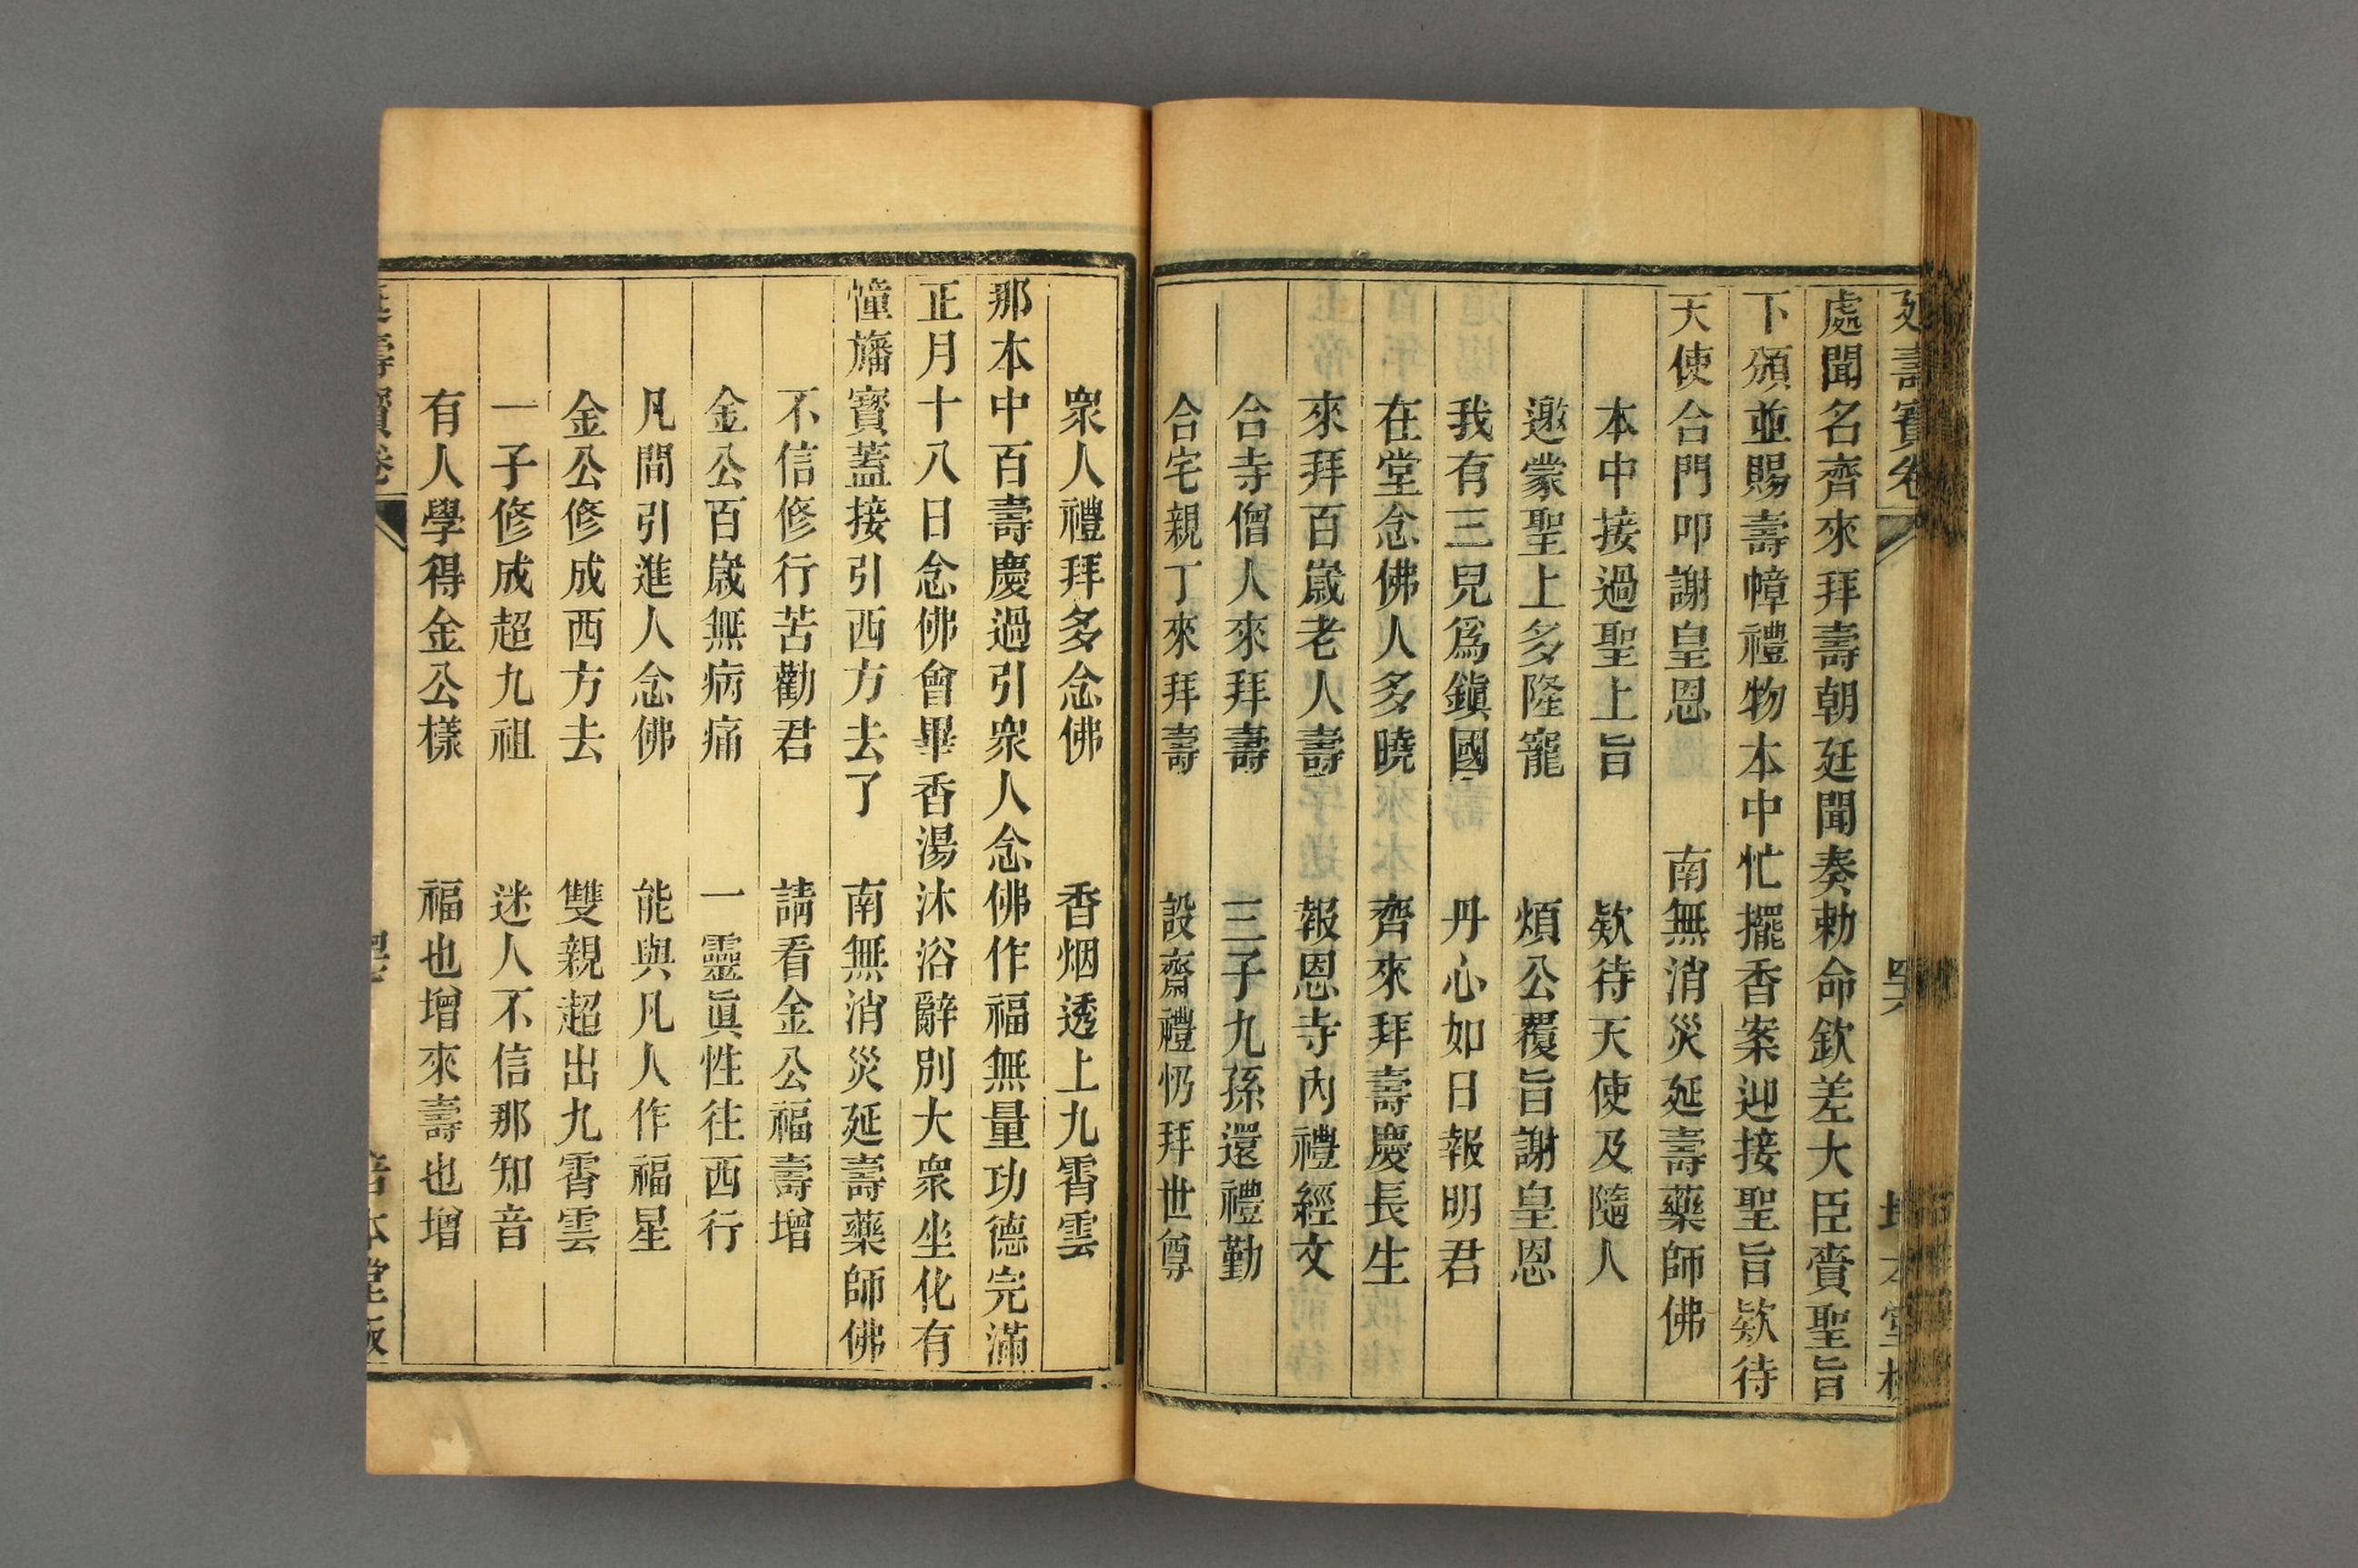 延壽寶卷
處聞名齊來拜壽朝廷聞奏勅命欽差大臣賫聖旨
下頒並賜壽幛禮物本中忙擺香案迎接聖旨欵待
天使合門叩謝皇恩 南無消災延壽藥師佛
本中接過聖上旨 欵待天使及隨人
邀蒙聖上多隆寵 煩公覆旨謝皇恩
我有三兒爲鎭國 丹心如日報明君
在堂念佛人多曉 齊來拜壽慶長生
來拜百歲老人壽 報恩寺內禮經文
合寺僧人來拜壽 三子九孫還禮勤
合宅親丁來拜壽 設齋禮忉拜世尊
眾人禮拜多念佛 香烟透上九霄雲
那本中百壽慶過引眾人念佛作福無量功德完滿
正月十八日念佛會畢香湯沐浴辭別大眾坐化有
憧旛寶蓋接引西方去了 南無消災延壽藥師佛
不信修行苦勸君 請看金公福壽增
金公百歲無病痛 一靈眞性往西行
凡間引進人念佛 能與凡人作福星
金公修成西方去 雙親超出九霄雲
一子修成超九祖 迷人不信那知音
有人學得金公樣 福也增來壽也增
壽寶卷 本堂